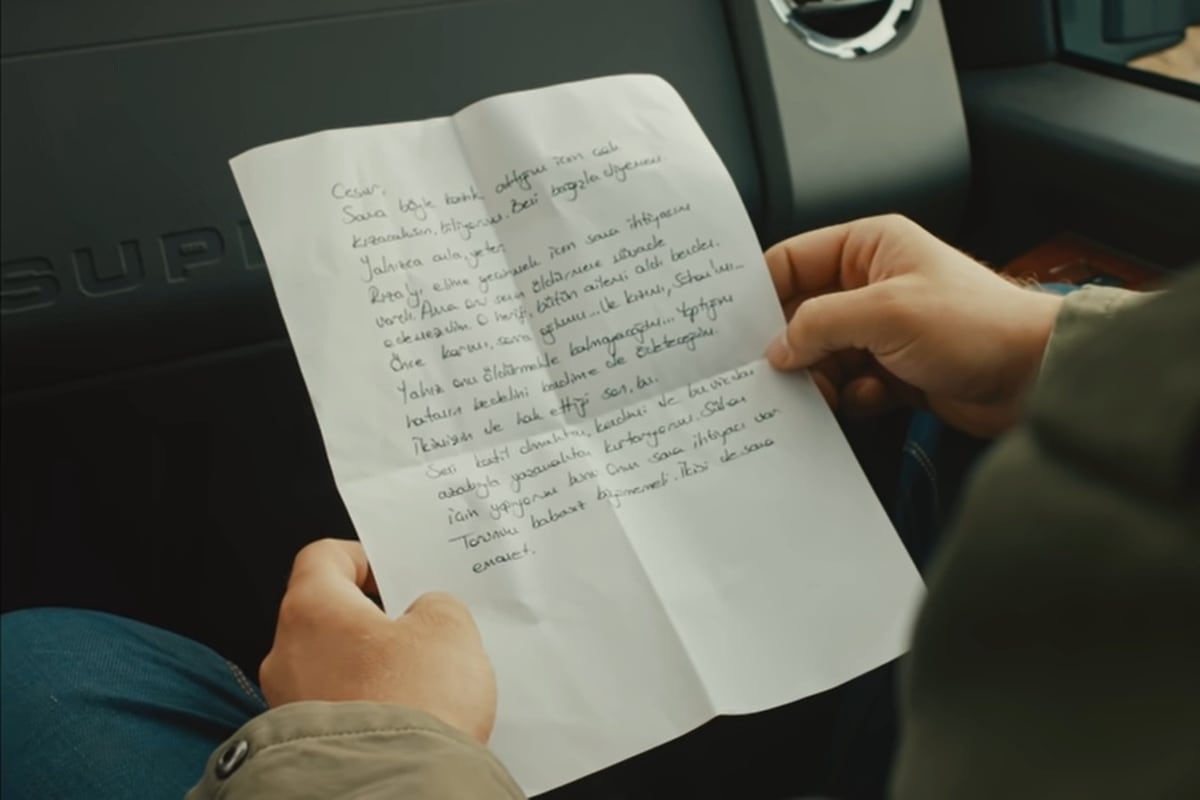 SUP
Cesur,
Sana böyle kazık attığım için çok
kızacaksın, biliyorum. Beni bağışla diyemem.
Yalnızca anla, yeter.
Rıza'yı elime geçirmek için sana ihtiyacım
vardı. Ama onu senin öldürmene müsade
edemezdim. O herif, bütün ailemi aldı benden.
Önce karımı, sonra oğlumu... Ve kızımı, Sühan'ımı...
Yalnız onu öldürmekle kalmayacağım... Yaptığım
hatanın bedelini kendime de ödeteceğim.
İkimizin de hak ettiği son, bu.
Seni katil olmaktan, kendimi de bu vicdan
azabıyla yaşamaktan kurtarıyorum. Sühan
için yapıyorum bunu. Onun sana ihtiyacı var.
Torunum babasız büyümemeli. İkisi de sana
emanet.